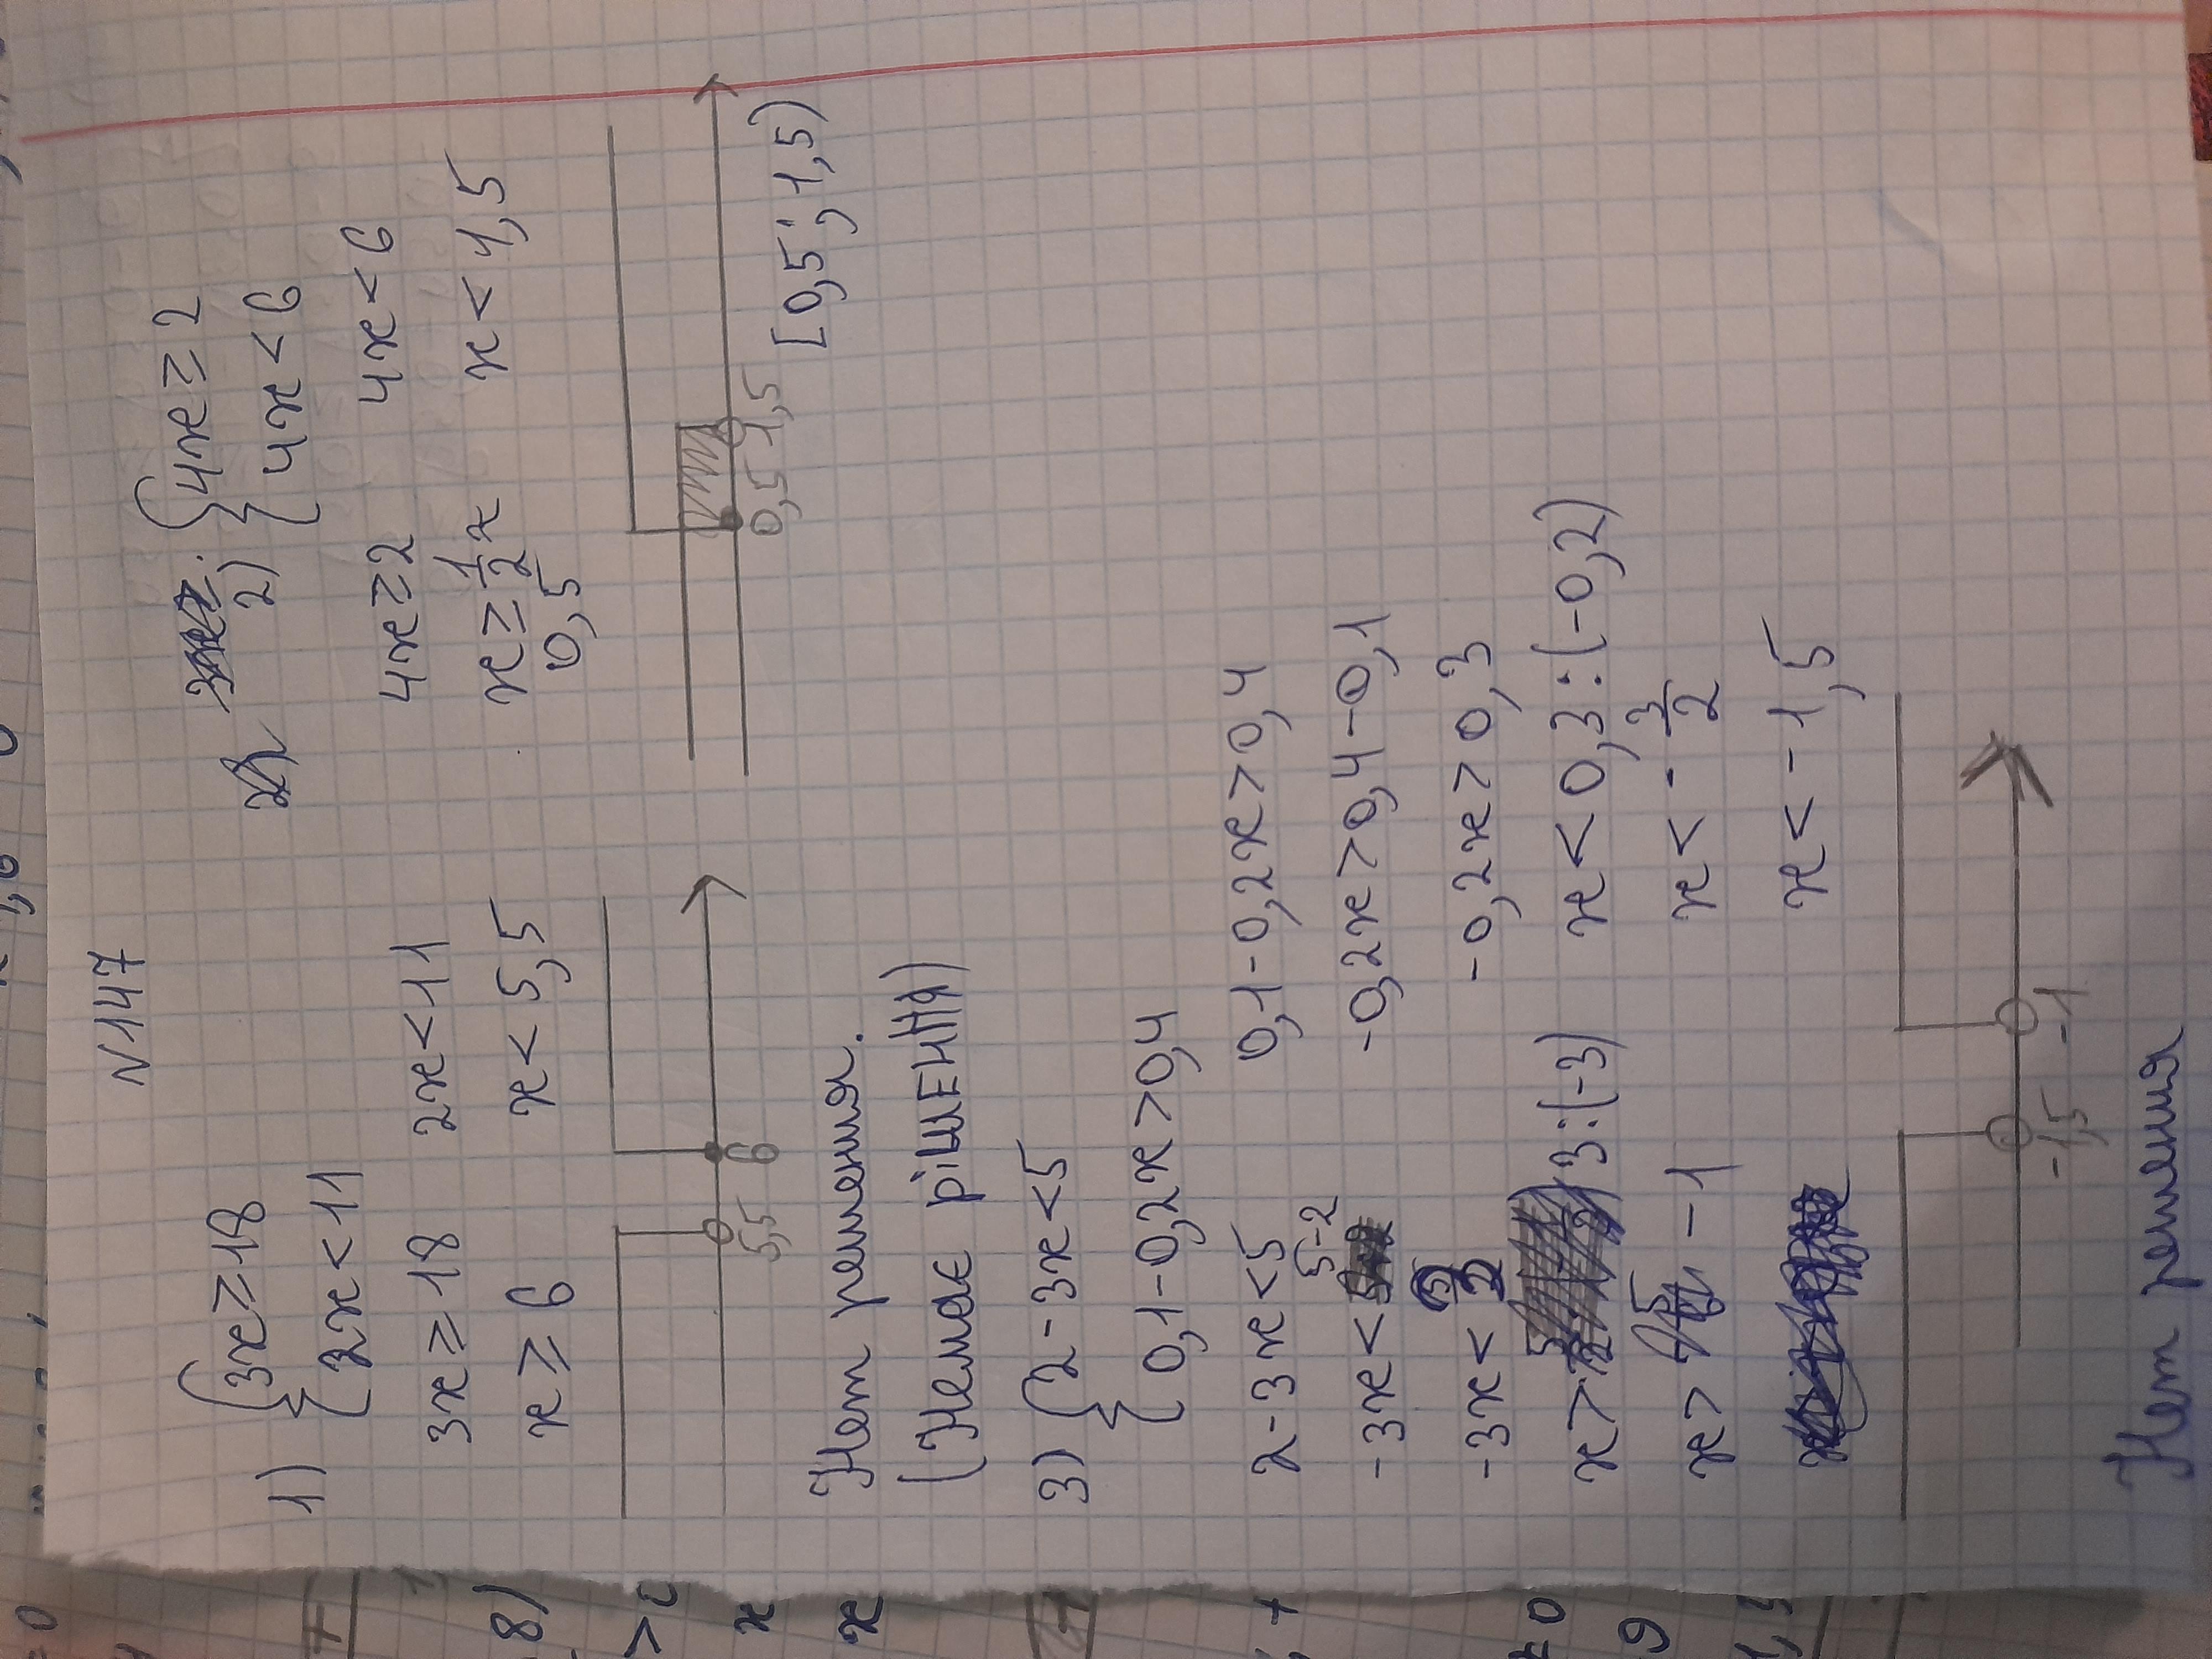 N 147
1) { 3x ≥ 18
2x < 11
3x ≥ 18 2x < 11
x ≥ 6 x < 5,5
5,5 6
Нет решения.
(Немає рішЕННЯ)
2) { 4x ≥ 2
4x < 6
4x ≥ 2 4x < 6
x ≥ 1/2 x < 1,5
0,5
0,5 1,5
[0,5; 1,5)
3) { 2-3x < 5
0,1-0,2x > 0,4
2-3x < 5 0,1-0,2x > 0,4
-3x < 5-2 -0,2x > 0,4-0,1
-3x < 3 -0,2x > 0,3
x > 3:(-3) x < 0,3:(-0,2)
x > -1 x < -3/2
x < -1,5
-1,5 -1
Нет решения